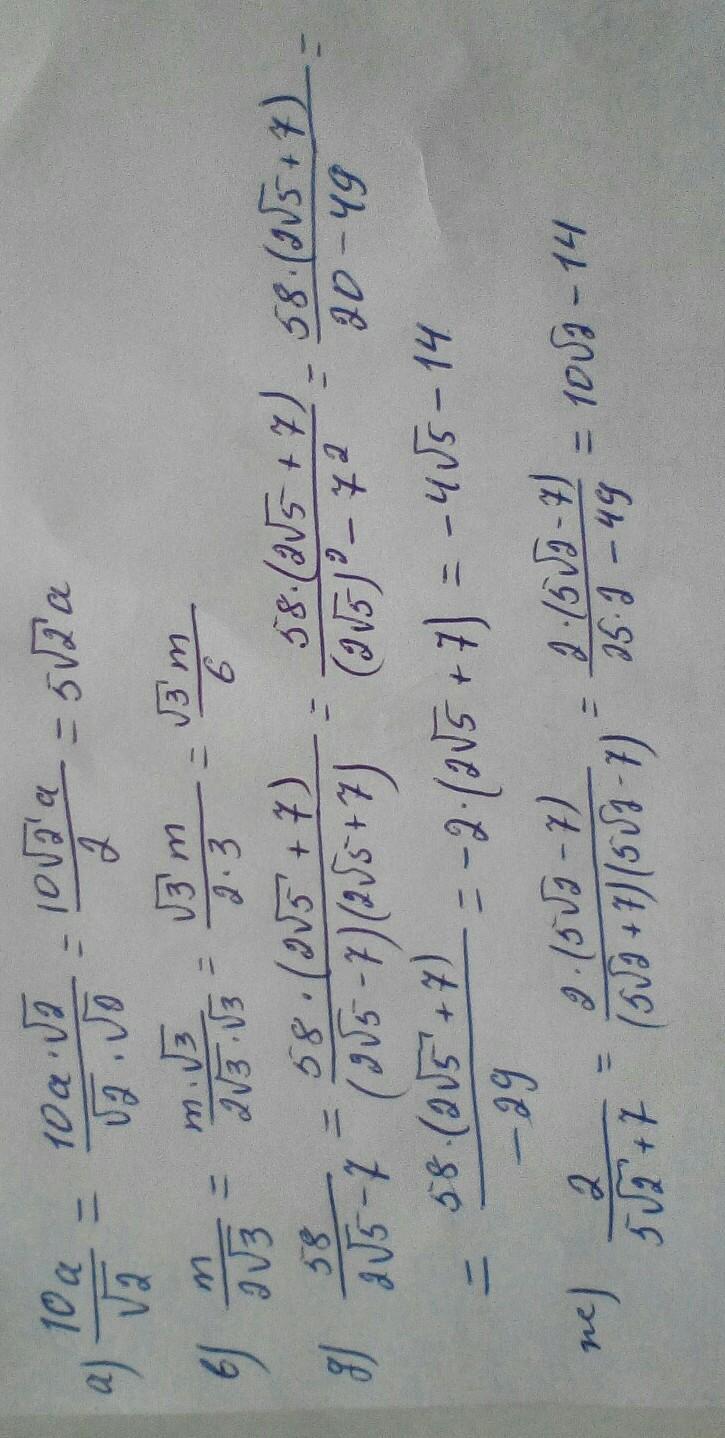 а) 10a/√2 = 10a·√2/√2·√2 = 10√2a/2 = 5√2a
в) m/2√3 = m·√3/2√3·√3 = √3m/2·3 = √3m/6
д) 58/2√5-7 = 58·(2√5+7)/(2√5-7)(2√5+7) = 58·(2√5+7)/(2√5)²-7² = 58·(2√5+7)/20-49 =
= 58·(2√5+7)/-29 = -2·(2√5+7) = -4√5-14
ж) 2/5√2+7 = 2·(5√2-7)/(5√2+7)(5√2-7) = 2·(5√2-7)/25·2-49 = 10√2-14